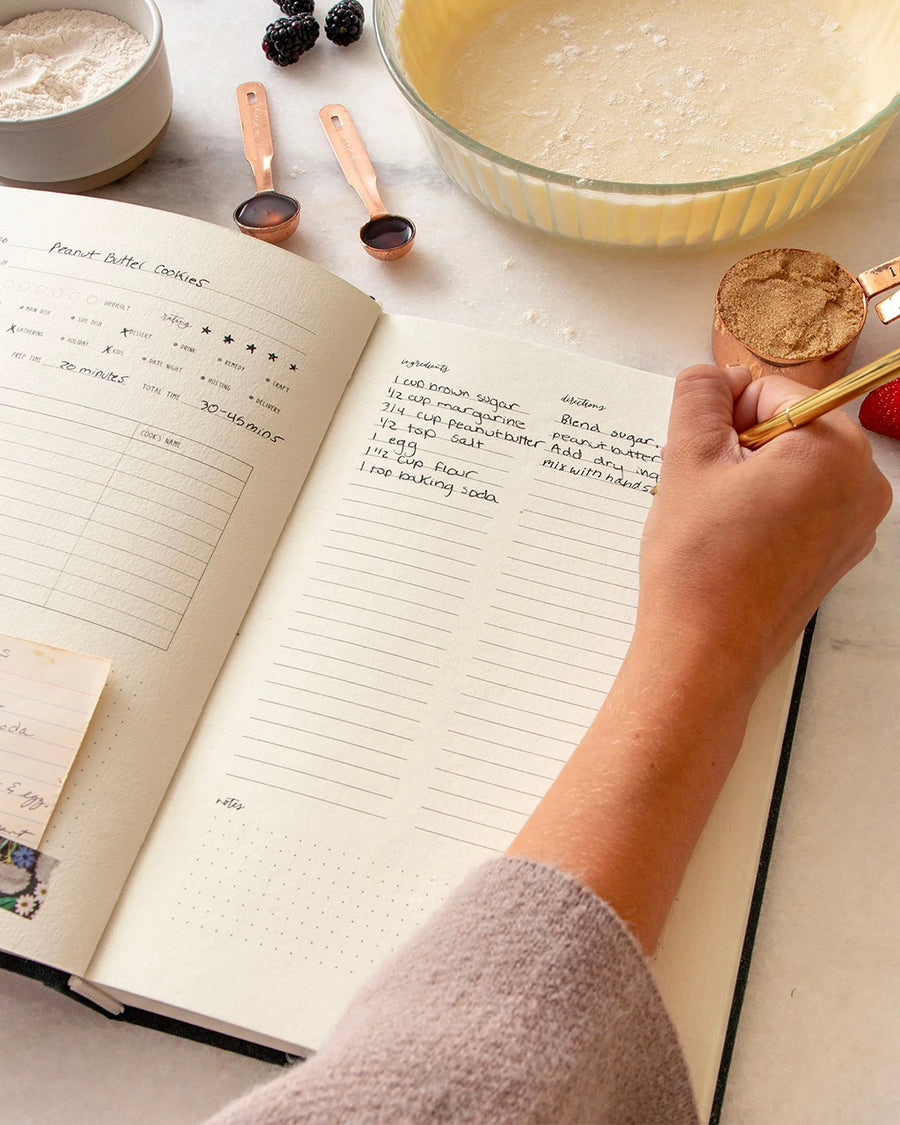 Peanut Butter Cookies
DIFFICULT
rating
MAIN DISH SIDE DISH DESSERT DRINK REMEDY CRAFT
GATHERING HOLIDAY KIDS DATE NIGHT HOSTING DELIVERY
PREP TIME 20 minutes TOTAL TIME 30-45mins
COOK'S NAME
ingredients
1 cup brown sugar
1/2 cup margarine
3/4 cup peanutbutter
1/2 tsp salt
1 egg
1 1/2 cup flour
1 tsp baking soda
directions
Blend sugar,
peanut butter
Add dry ing
mix with hands
notes
& egg.
1